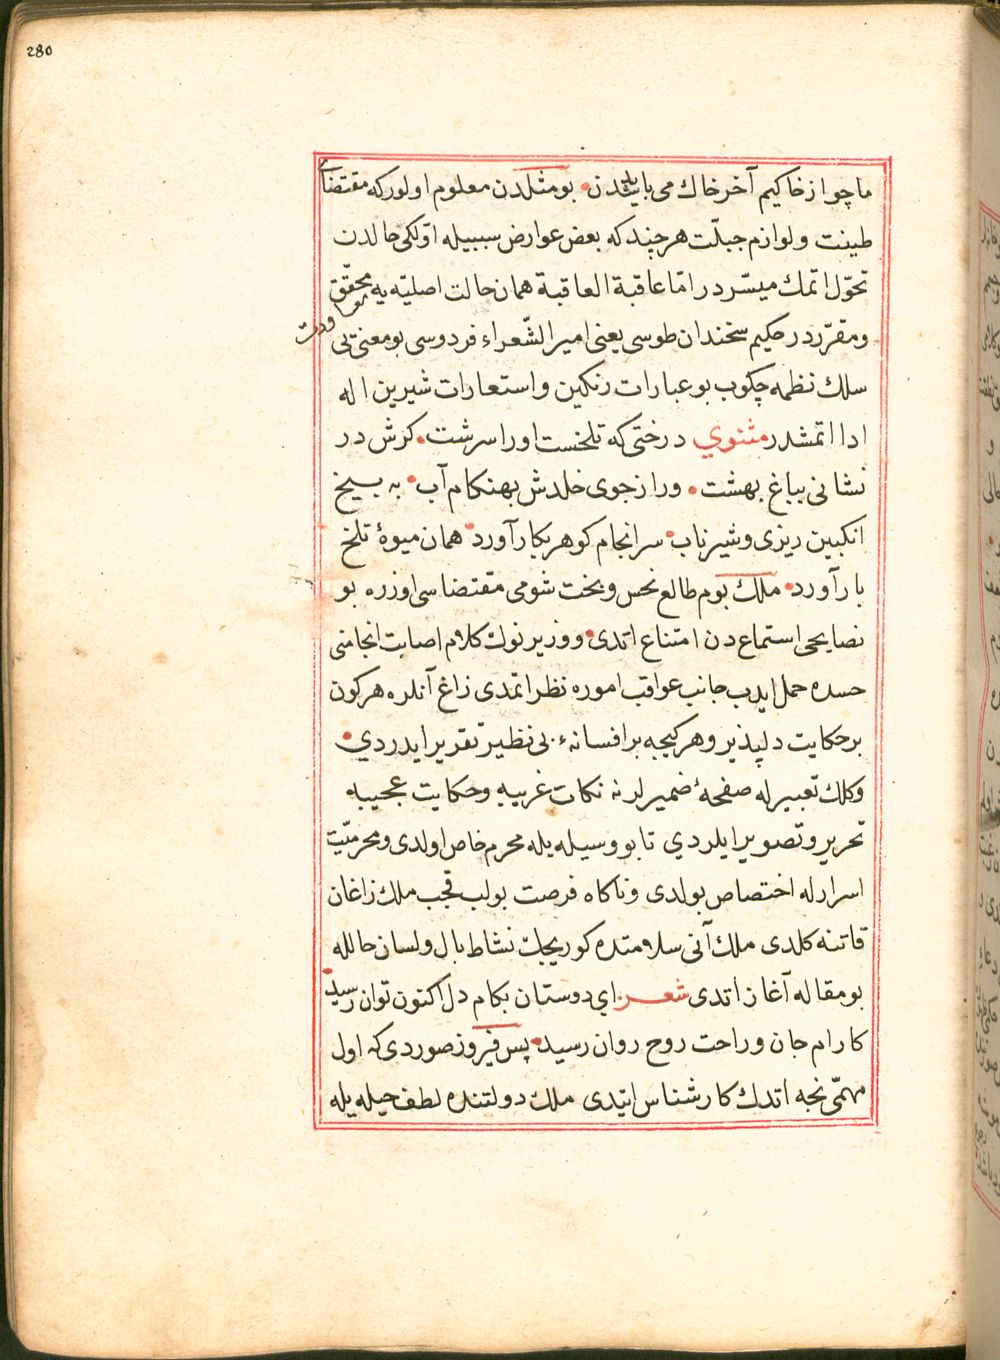 280
ما چو از خاکیم آخر خاك می باید شدن • بو مثلدن معلوم اولور که مقتضای
طینت و لوازم جبلّت هر چند که بعض عوارض سببیله اوّلکی حالدن
تحوّل اتمك میسّر در امّا عاقبة العاقبة همان حالت اصلیّه یه معاودت محقّق
و مقرّر در حکیم سخندان طوسی یعنی امیر الشّعراء فردوسی بو معنی یی
سلك نظمه چکوب بو عبارات رنکین و استعارات شیرین اله
ادا اتمشدر مثنوي درختی که تلخست اورا سرشت • کرش در
نشانی بباغ بهشت • ور از جوی خلدش بهنکام آب • به بیخ
انکبین ریزی و شیر ناب • سر انجام کوهر بکار آورد • همان میوهٔ تلخ
بار آورد • ملك بوم طالع نحس و بخت شومی مقتضاسی اوزره بو
نصایحی استماع دن امتناع اتدی • و وزیرنوك کلام اصابت انجامنی
حسده حمل ایدب جانب عواقب اموره نظر اتمدی زاغ آنلره هر کون
بر حکایت دلپذیر و هر کیجه بر افسانهء بی نظیر تقریر ایدردي •
و کلك تعبیرله صفحهٔ ضمیرلرنه نکات غریبه و حکایت عجیبه
تحریر و تصویر ایلردي تا بو وسیله یله محرم خاص اولدی و محرمیّت
اسرارله اختصاص بولدی و ناکاه فرصت بولب قجب ملك زاغان
قاتنه کلدی ملك آنی سلامتده کوریجك نشاط بال و لسان حالله
بو مقاله آغاز اتدی شعر ای دوستان بکام دل اکنون توان رسید
کارام جان و راحت روح روان رسید • پس فیروز صوردی که اول
مهمّی نجه اتدك کارشناس ایتدی ملك دولتنده لطف حیله یله